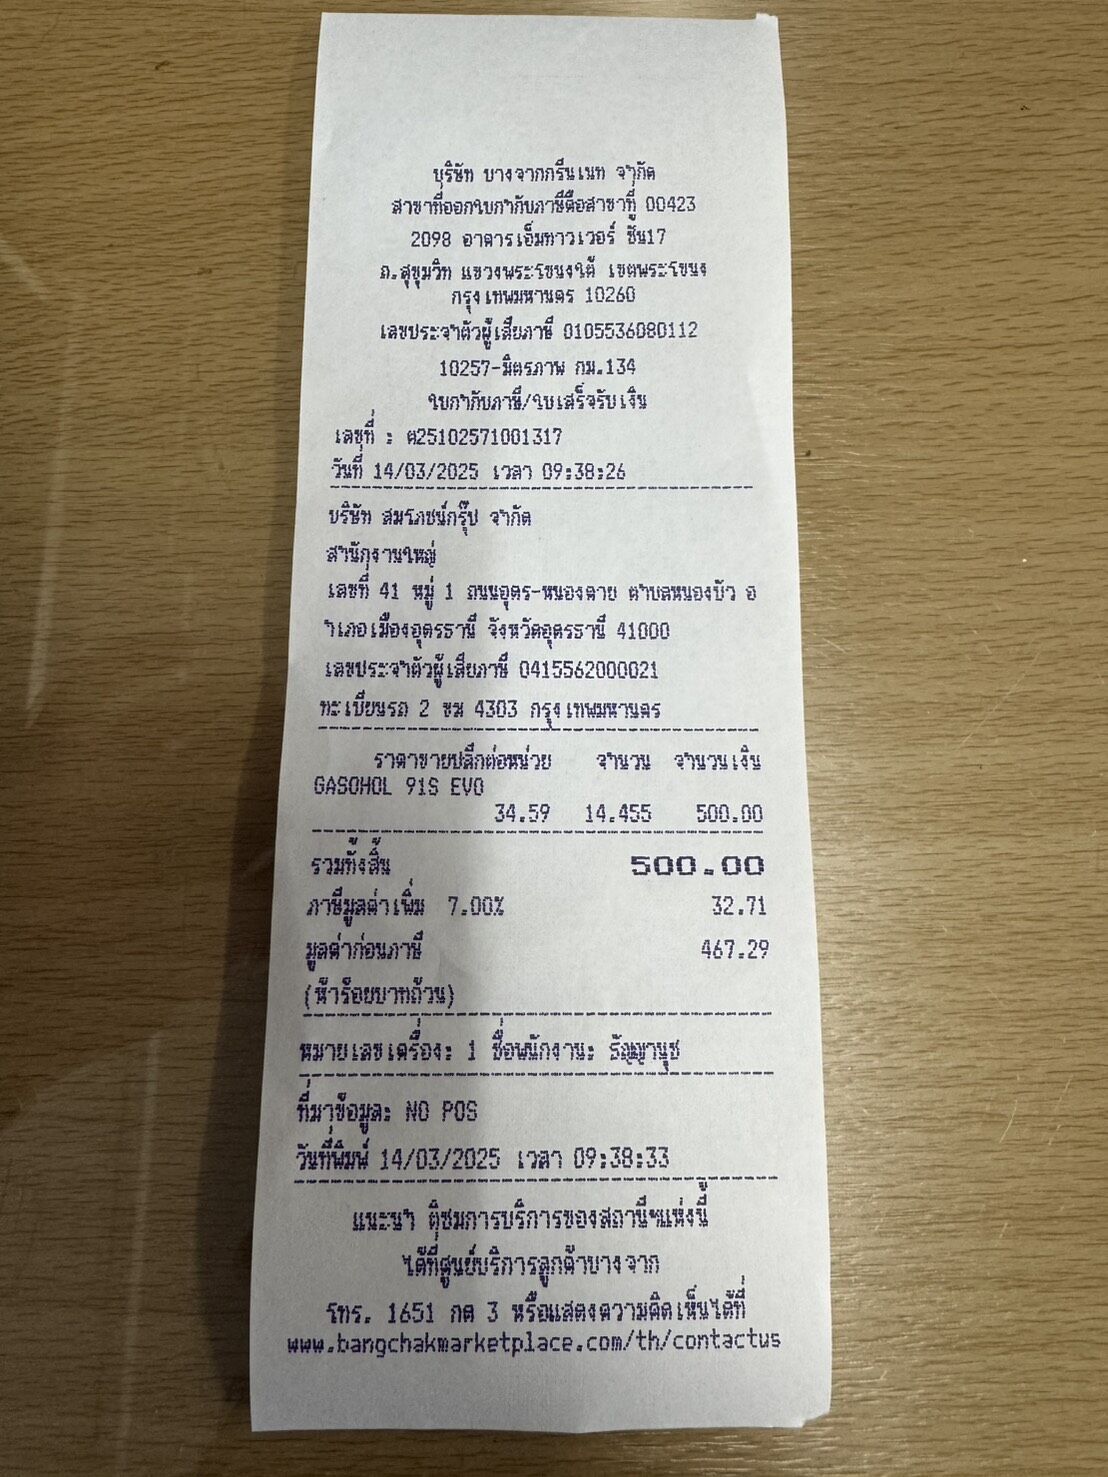 บริษัท บางจากกรีนเนท จำกัด
สาขาที่ออกใบกำกับภาษีคือสาขาที่ 00423
2098 อาคารเอ็มทาวเวอร์ ชั้น17
ถ.สุขุมวิท แขวงพระโขนงใต้ เขตพระโขนง
กรุงเทพมหานคร 10260
เลขประจำตัวผู้เสียภาษี 0105536080112
10257-มิตรภาพ กม.134
ใบกำกับภาษี/ใบเสร็จรับเงิน
เลขที่ : ต25102571001317
วันที่ 14/03/2025 เวลา 09:38:26
บริษัท สมโภชน์กรุ๊ป จำกัด
สำนักงานใหญ่
เลขที่ 41 หมู่ 1 ถนนอุดร-หนองคาย ตำบลหนองบัว อ
ำเภอเมืองอุดรธานี จังหวัดอุดรธานี 41000
เลขประจำตัวผู้เสียภาษี 0415562000021
ทะเบียนรถ 2 ขม 4303 กรุงเทพมหานคร
ราคาขายปลีกต่อหน่วย จำนวน จำนวนเงิน
GASOHOL 91S EVO
34.59 14.455 500.00
รวมทั้งสิ้น 500.00
ภาษีมูลค่าเพิ่ม 7.00% 32.71
มูลค่าก่อนภาษี 467.29
(ห้าร้อยบาทถ้วน)
หมายเลขเครื่อง: 1 ชื่อพนักงาน: ธัญญานุช
ที่มาข้อมูล: NO POS
วันที่พิมพ์ 14/03/2025 เวลา 09:38:33
แนะนำ ติชมการบริการของสถานีฯแห่งนี้
ได้ที่ศูนย์บริการลูกค้าบางจาก
โทร. 1651 กด 3 หรือแสดงความคิดเห็นได้ที่
www.bangchakmarketplace.com/th/contactus